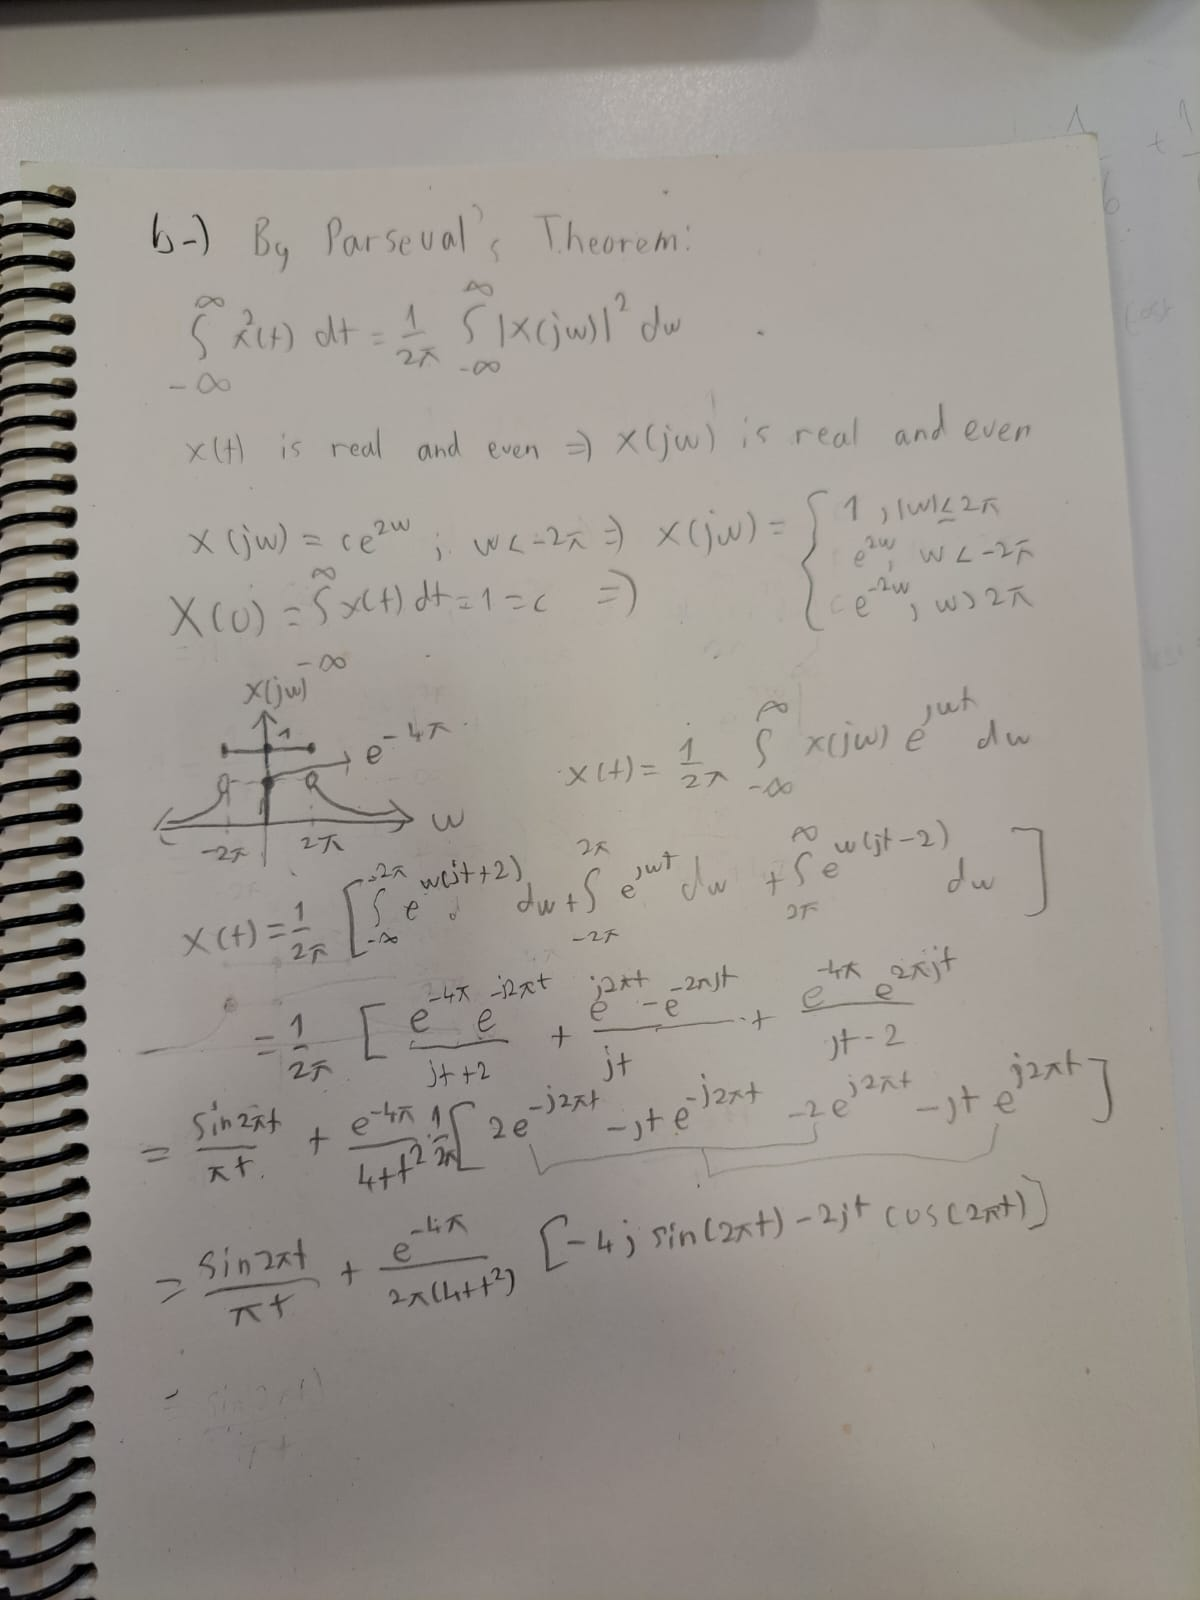 b-) By Parseval's Theorem:
∫_{-∞}^{∞} x²(t) dt = 1/2π ∫_{-∞}^{∞} |X(jw)|² dw
x(t) is real and even ⇒ X(jw) is real and even
X(jw) = ce^{2w} ; w < -2π ⇒ X(jw) = { 1 , |w| ≤ 2π
e^{2w} , w < -2π
e^{-2w} , w > 2π
X(0) = ∫_{-∞}^{∞} x(t) dt = 1 = c ⇒
X(jw)
1
e^{-4π}
-2π 2π w
x(t) = 1/2π ∫_{-∞}^{∞} X(jw) e^{jwt} dw
x(t) = 1/2π [ ∫_{-∞}^{-2π} e^{w(jt+2)} dw + ∫_{-2π}^{2π} e^{jwt} dw + ∫_{2π}^{∞} e^{w(jt-2)} dw ]
= 1/2π [ e^{-4π} e^{-j2πt} / (jt+2) + (e^{j2πt} - e^{-2πjt}) / jt + e^{-4π} e^{2πjt} / (jt-2)
= sin2πt / πt + e^{-4π} / (4+t²) 1/2π [ 2e^{-j2πt} - jte^{-j2πt} - 2e^{j2πt} - jt e^{j2πt} ]
= sin2πt / πt + e^{-4π} / 2π(4+t²) [ -4j sin(2πt) - 2jt cos(2πt) ]